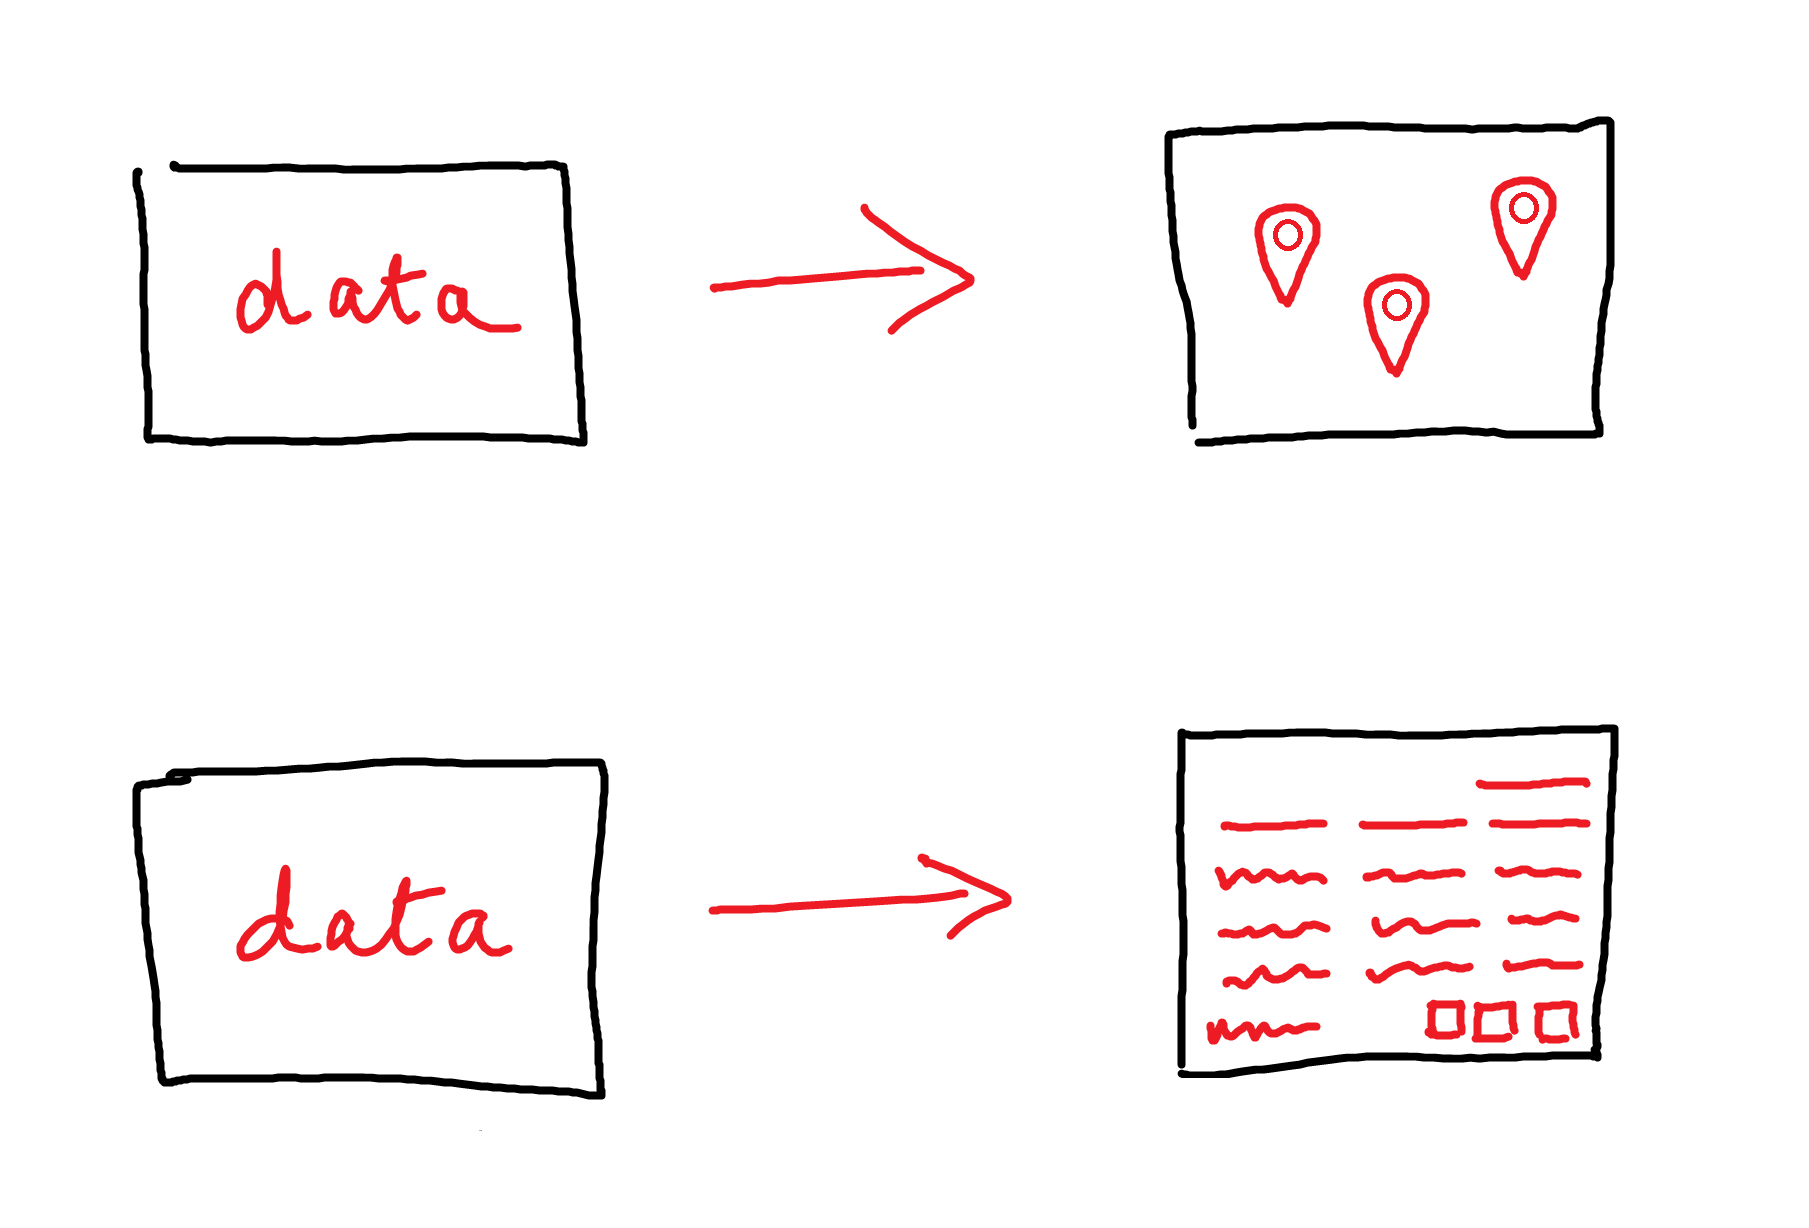 data
data